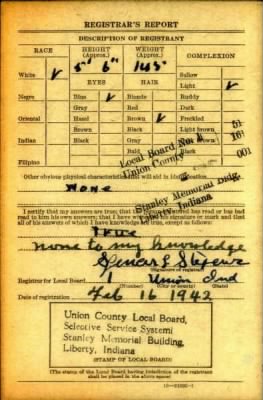 REGISTRAR'S REPORT
DESCRIPTION OF REGISTRANT
RACE HEIGHT (Approx.) WEIGHT (Approx.) COMPLEXION
White ✓ 5' 6" 145 Sallow
EYES HAIR Light ✓
Negro Blue ✓ Blonde Ruddy
Gray Red Dark
Oriental Hazel Brown ✓ Freckled
Brown Black Light Brown
Indian Black Gray Brown
Bald Black
Filipino
Local Board No. 1 51
Union County 161
001
Stanley Memorial Bldg.
Liberty, Indiana
Other obvious physical characteristics that will aid in identification
None
I certify that my answers are true; that the person registered has read or has had
read to him his own answers; that I have witnessed his signature or mark and that
all of his answers of which I have knowledge are true, except as follows:
True
none to my knowledge
Registrar for Local Board 1 Union Ind
(Number) (City or county) (State)
Date of registration Feb 16 1942
Union County Local Board,
Selective Service System
Stanley Memorial Building,
Liberty, Indiana
(STAMP OF LOCAL BOARD)
(The stamp of the Local Board having jurisdiction of the registrant
shall be placed in the above space.)